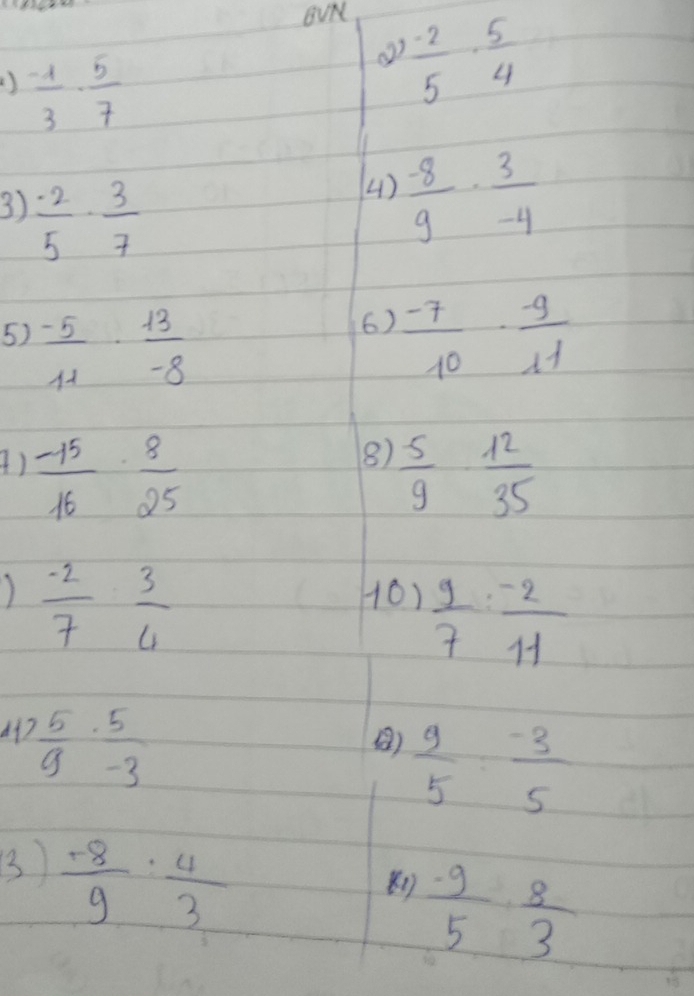 BVN
) -1/3 . 5/7
2) -2/5 . 5/4
3) -2/5 . 3/7
4) -8/9 . 3/-4
5) -5/11 . 13/-8
6) -7/10 . -9/11
7) -15/16 . 8/25
8) 5/9 . 12/35
) -2/7 : 3/4
10) 9/7 : -2/11
11) 5/9 : 5/-3
12) 9/5 : -3/5
13) -8/9 : 4/3
-9/5 8/3